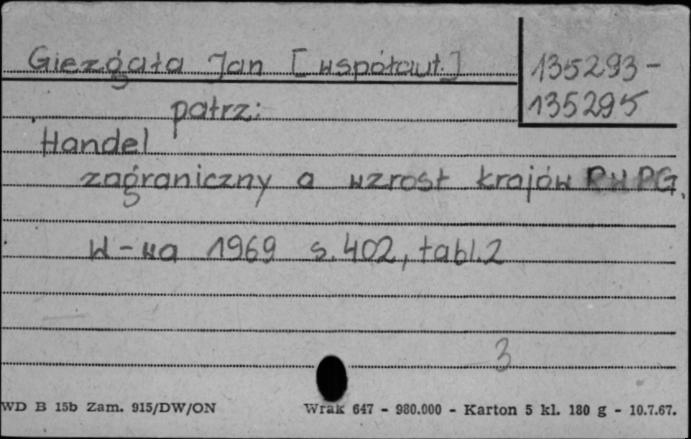 Giezgała Jan [współaut.]
135293-
135295
patrz:
Handel
zagraniczny a wzrost krajów RWPG.
W-wa 1969 s. 402, tabl. 2
3
WD B 15b Zam. 915/DW/ON
Wrak 647 - 980.000 - Karton 5 kl. 180 g - 10.7.67.